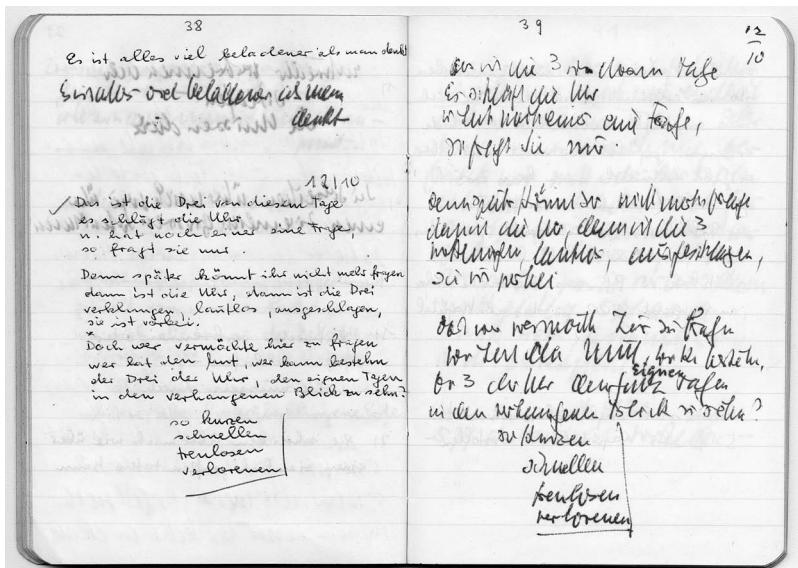 38
Es ist alles viel beladener als man denkt
Es ist alles viel beladener als man
denkt
12/10
✓ Das ist die Drei von diesem Tage
es schlägt die Uhr
u. hat noch einer eine Frage,
so fragt sie nur.
Denn später könnt ihr nicht mehr fragen
dann ist die Uhr, dann ist die Drei
verhangen, lautlos, ausgeschlagen,
sie ist vorbei.
Doch wer vermöchte hier zu fragen
wer hat den Mut, wer kann bestehn
der Drei der Uhr, den eignen Tagen
in den verhangenen Blick zu sehn?
so kurzen
schnellen
treulosen
verlorenen
39
12/10
Das ist die 3 von diesem Tage
Es schlägt die Uhr
u hat noch einer eine Frage,
so fragt sie nur.
denn später könnt ihr nicht mehr fragen
dann ist die Uhr, dann ist die 3
verhangen, lautlos, ausgeschlagen,
sie ist vorbei
doch wer vermöcht hier zu fragen
wer hat den Mut, wer kann bestehn,
der 3 der Uhr den eignen Tagen
in den verhangenen Blick zu sehn?
so kurzen
schnellen
treulosen
verlorenen